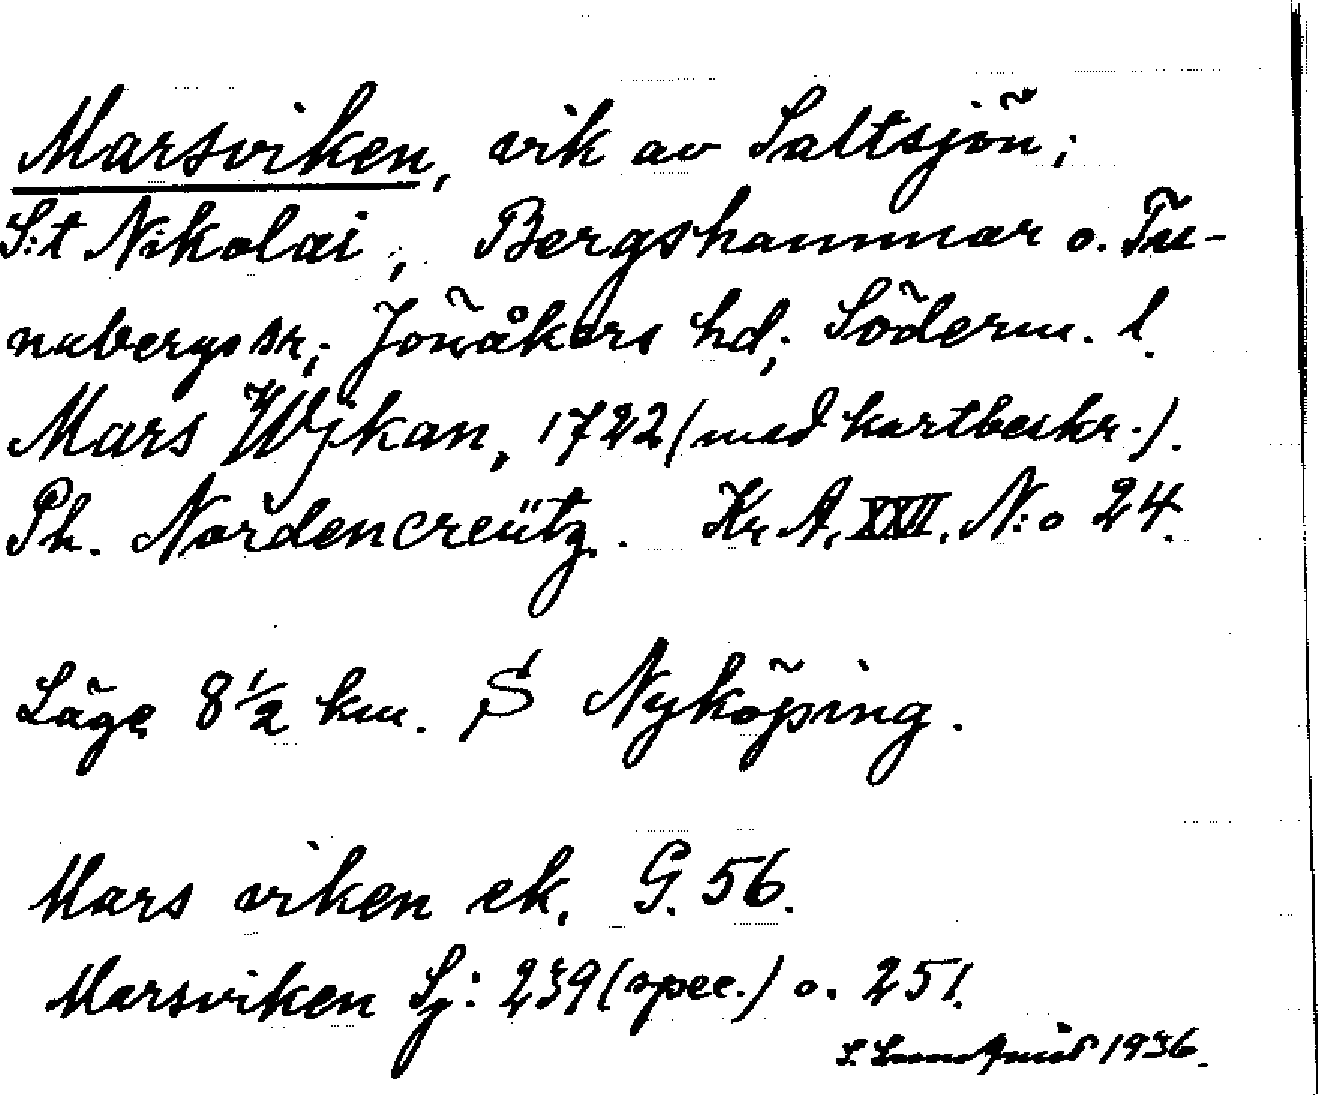 Marsviken, vik av Saltsjön;
S:t Nikolai, Bergshammar o. Tu-
nabergs sn; Jönåkers hd; Söderm. l.
Mars Wjkan, 1722 (med kartbeskr.).
Ph. Nordencreütz. Kr A. XXVI. N:o 24.
Läge 8 1/2 km. S Nyköping.
Mars viken ek. G. 56.
Marsviken Sj: 239 (spec.) o. 251.
S. Lundquist 1936.